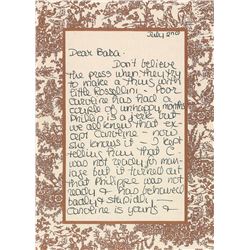 July 2nd
Dear Baba.
Don't believe
the press when they try
to make a thing with
little Rossellini. Poor
Caroline has had a
couple of unhappy months
Phillip is a jerk but
we all knew that ex-
cept Caroline - now
she knows it - I kept
telling him that C
was not ready for mar-
iage but it turned out
that Philippe was not
ready & has behaved
badly & stupidly -
Caroline is yours &